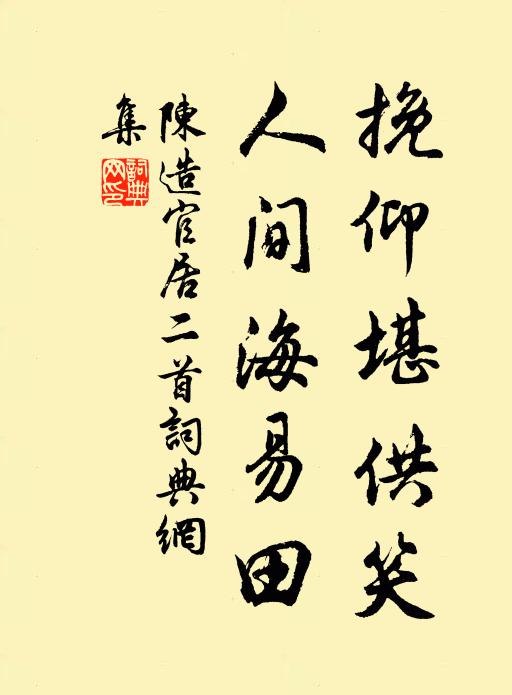 挽仰堪供笑
人間海易田
陳造官居二首詞典網
集
詞典網印